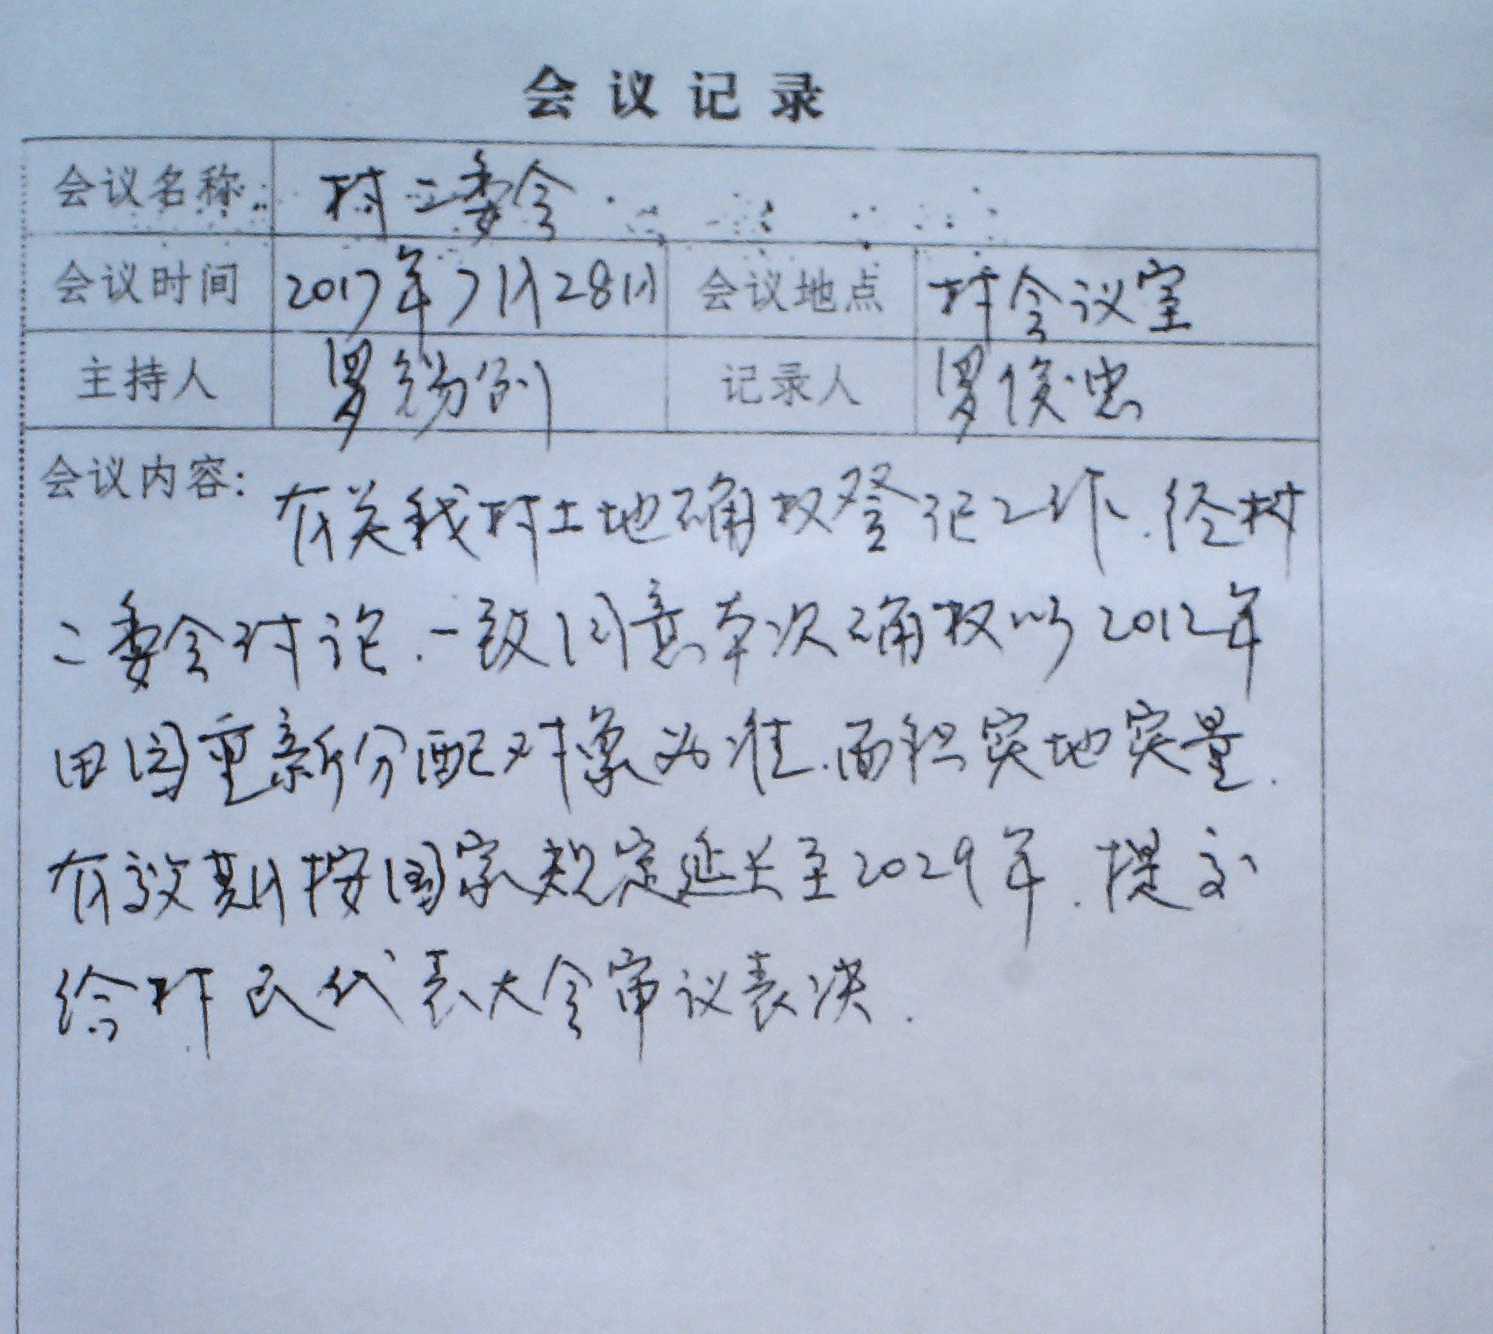 会议记录
会议名称 村二委会
会议时间 2017年7月28日 会议地点 村会议室
主持人 罗锡例 记录人 罗俊忠
会议内容: 有关我村土地确权登记工作.经村
二委会讨论.一致同意本次确权以2012年
田园重新分配对象为准.面积实地实量.
有效期按国家规定延长至2029年.提交
给村民代表大会审议表决.